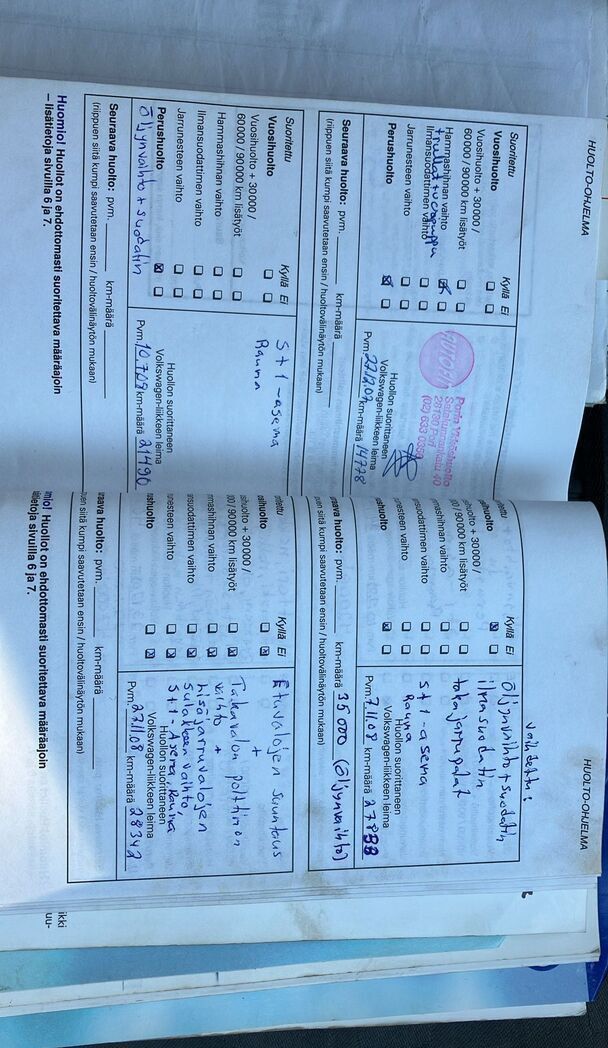 HUOLTO-OHJELMA
Suoritettu Kyllä Ei
Vuosihuolto
Vuosihuolto + 30000 /
60000 / 90000 km lisätyöt
Hammashihnan vaihto
Ilmansuodattimen vaihto
Jarrunesteen vaihto
Perushuolto
Huollon suorittaneen
Volkswagen-liikkeen leima
Pvm. 27.12.07 km-määrä 14778
Seuraava huolto: pvm. km-määrä
(riippuen siitä kumpi saavutetaan ensin / huoltovälinäytön mukaan)
Suoritettu Kyllä Ei
Vuosihuolto
Vuosihuolto + 30000 /
60000 / 90000 km lisätyöt
Hammashihnan vaihto
Ilmansuodattimen vaihto
Jarrunesteen vaihto
Perushuolto
Öljynvaihto + suodatin
St1-asema
Rauma
Huollon suorittaneen
Volkswagen-liikkeen leima
Pvm. km-määrä 21490
Seuraava huolto: pvm. km-määrä
(riippuen siitä kumpi saavutetaan ensin / huoltovälinäytön mukaan)
Huomio! Huollot on ehdottomasti suoritettava määräajoin
– lisätietoja sivuilla 6 ja 7.
HUOLTO-OHJELMA
ritettu Kyllä Ei
sihuolto
sihuolto + 30000 /
00 / 90000 km lisätyöt
mashihnan vaihto
nsuodattimen vaihto
nesteen vaihto
ushuolto
vaihdettu:
öljynvaihto + suodatin
ilmansuodatin
takajarrupalat
St1-asema
Rauma
Huollon suorittaneen
Volkswagen-liikkeen leima
Pvm. 7.11.08 km-määrä
raava huolto: pvm. km-määrä 35000 (öljynvaihto)
uen siitä kumpi saavutetaan ensin / huoltovälinäytön mukaan)
ritettu Kyllä Ei
sihuolto
sihuolto + 30000 /
00 / 90000 km lisätyöt
mashihnan vaihto
nsuodattimen vaihto
nesteen vaihto
ushuolto
Etuvalojen suuntaus
+
Takavalon polttimon
vaihto +
lisäjarruvalojen
sulakkeen vaihto,
St1-Asema, Rauma
Huollon suorittaneen
Volkswagen-liikkeen leima
Pvm. 27.11.08 km-määrä 28342
raava huolto: pvm. km-määrä
uen siitä kumpi saavutetaan ensin / huoltovälinäytön mukaan)
mio! Huollot on ehdottomasti suoritettava määräajoin
ätietoja sivuilla 6 ja 7.
ikki
uu-